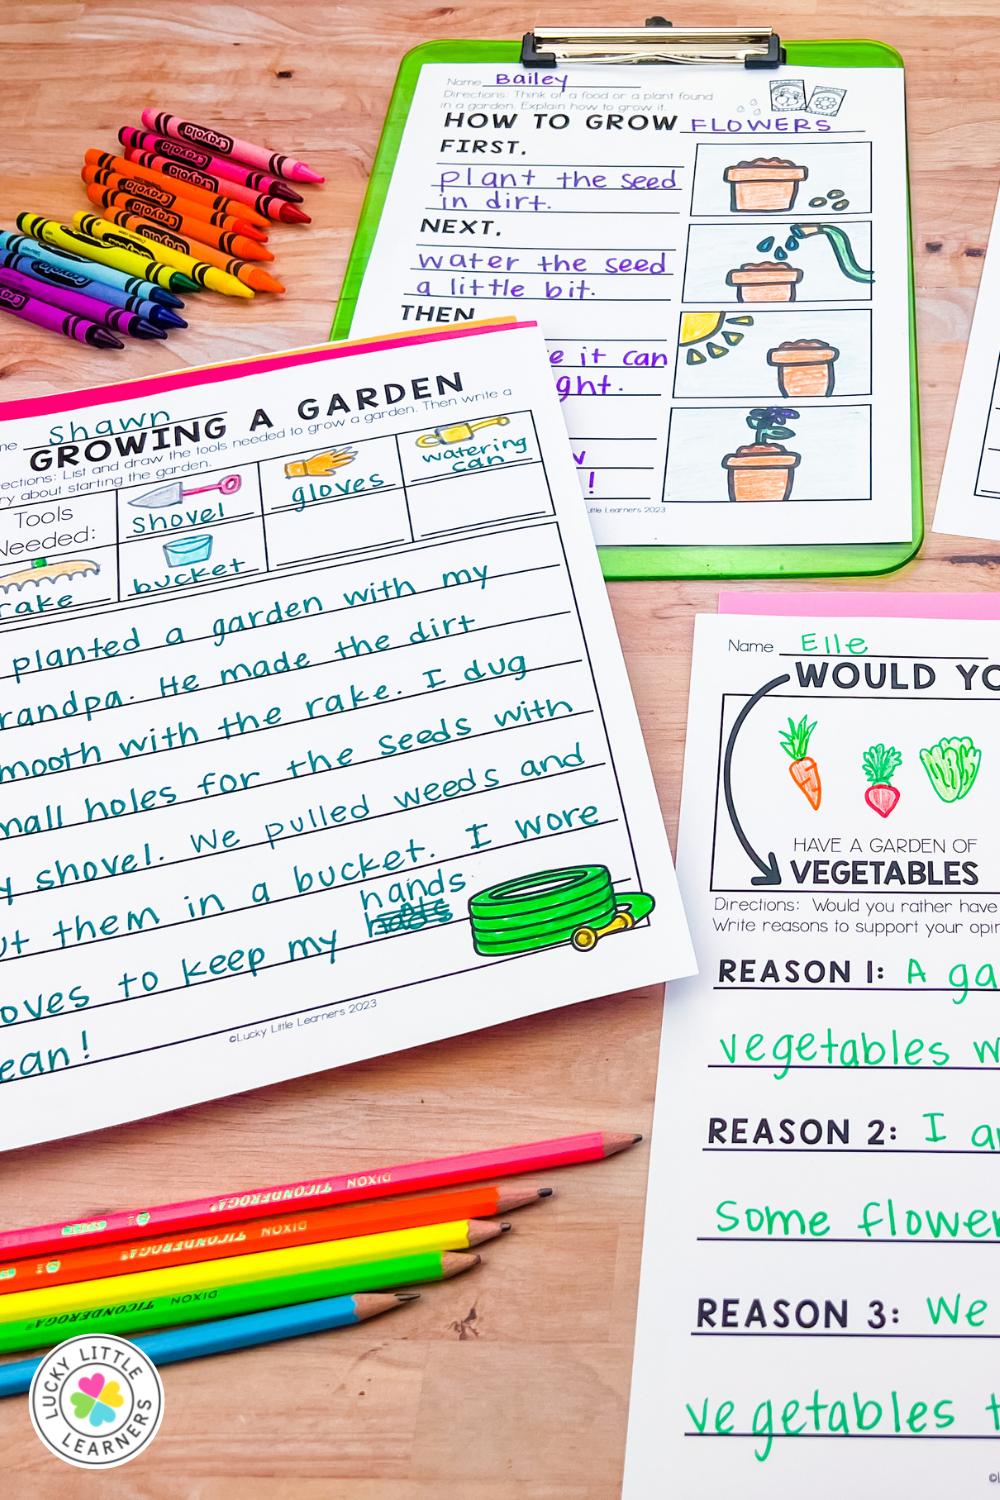 Name Bailey
Directions: Think of a food or a plant found
in a garden. Explain how to grow it.
HOW TO GROW FLOWERS
FIRST,
plant the seed
in dirt.
NEXT,
water the seed
a little bit.
THEN
it can
!
Little Learners 2023
Shawn
GROWING A GARDEN
List and draw the tools needed to grow a garden. Then write a
about starting the garden.
Tools
Needed:
shovel
gloves
watering
can
rake
bucket
planted a garden with my
randpa. He made the dirt
mooth with the rake. I dug
mall holes for the seeds with
y shovel. We pulled weeds and
ut them in a bucket. I wore
hands
oves to keep my
ean!
©Lucky Little Learners 2023
Name Elle
WOULD YO
HAVE A GARDEN OF
VEGETABLES
Directions: Would you rather have
Write reasons to support your opin
REASON 1: A ga
vegetables w
REASON 2: I a
some flower
REASON 3: We
vegetables t
Crayola
Crayola
Crayola
Crayola
Crayola
Crayola
DIXON TICONDEROGA
DIXON TICONDEROGA
DIXON TICONDEROGA
LUCKY LITTLE LEARNERS